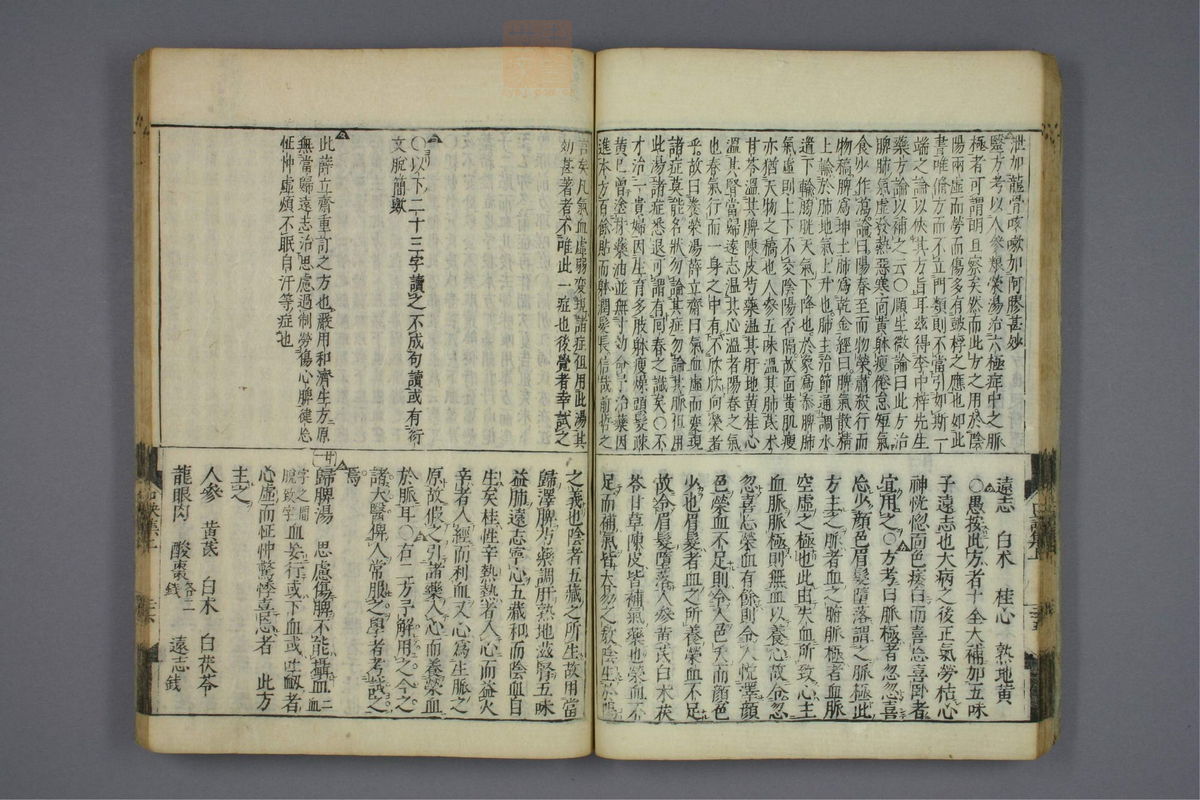 泄加龍骨咳嗽加阿膠甚妙
醫方考以人參養榮湯治六極症中之脈
極者可謂明且察矣然而此方之用於陰
陽兩虛而勞而傷多有皷桴之應也如此
書唯脩方而不立門類則不當引如斯一
端之論以狹其方旨耳或得李中梓先生
藥方論以補之云○願生微論曰此方治
脾肺氣虛發熱惡寒面黄躰瘦倦怠短氣
食少作瀉識曰陽春至而物榮肅殺行而
物槁脾為坤土肺為乾金經曰脾氣散精
上輸於肺地氣上升也肺主治節通調水
道下輸膀胱天氣下降也於象為泰脾肺
氣虛則上下不交陰陽否隔故面黄肌瘦
亦猶天物之槁也人參五味溫其肺芪术
甘苓溫其脾陳皮芍藥溫其肝地黄桂心
溫其腎當歸遠志溫其心溫者陽春之氣
也春氣行而一身之中有不欣欣向榮者
乎故曰養榮湯薛立齋曰氣血虛而變現
諸症莫能名狀勿論其症勿論其脈但用
此湯諸症悉退可謂有回春之識矣○不
才治一貴婦因生育多肢躰瘦燥頭髮疎
黄已曾塗牙藥油並無寸効命予治藥因
進本方百餘貼而躰潤髮長信哉前哲之
遠志 白术 桂心 熟地黄
○愚按此方者十全大補加五味
子遠志也大病之後正氣勞枯心
神恍惚面色痿白而喜忘喜卧者
宜用之○方考曰脈極者忽忽喜
忘少顏色眉髮墮落謂之脈極此
方主之脈者血之腑脈極者血脈
空虛之極也此由失血所致心主
血脈脈極則無血以養心故令忽
忽喜忘榮血有餘則令人悅澤顏
色榮血不足則令人色夭而顏色
少也眉髮者血之所養榮血不足
故令眉髮墮落人參黄芪白术茯
苓甘草陳皮皆補氣藥也榮血不
足而補氣皆大
言矣凡氣血虛弱変現諸症但用此湯其
効甚著者不唯此一症也後覺者幸試之
○以下二十三字讀之不成句讀或有衍
文脫簡歟
此薛立齋重訂之方也嚴用和濟生方原
無當歸遠志治思慮過制勞傷心脾健忘
怔忡虛煩不眠自汗等症也
之義也陰者五藏之所生故用當
歸澤脾芍藥調肝熟地滋腎五味
益肺遠志寧心五藏和而陰血自
生矣桂性辛熱熱者入心而益火
辛者入經而利血又心為生脈之
原故假之引諸藥入心而養榮血
於脈耳○右二方予解用之今之
諸大醫俾人常服之學者考試之
焉
歸脾湯 思慮傷脾不能攝血二
字之間脫致字血妄行或下血或吐衂者
心虛而怔忡驚悸喜忘者 此方
主之
人參 黄芪 白术 白茯苓
龍眼肉 酸棗各二錢 遠志錢